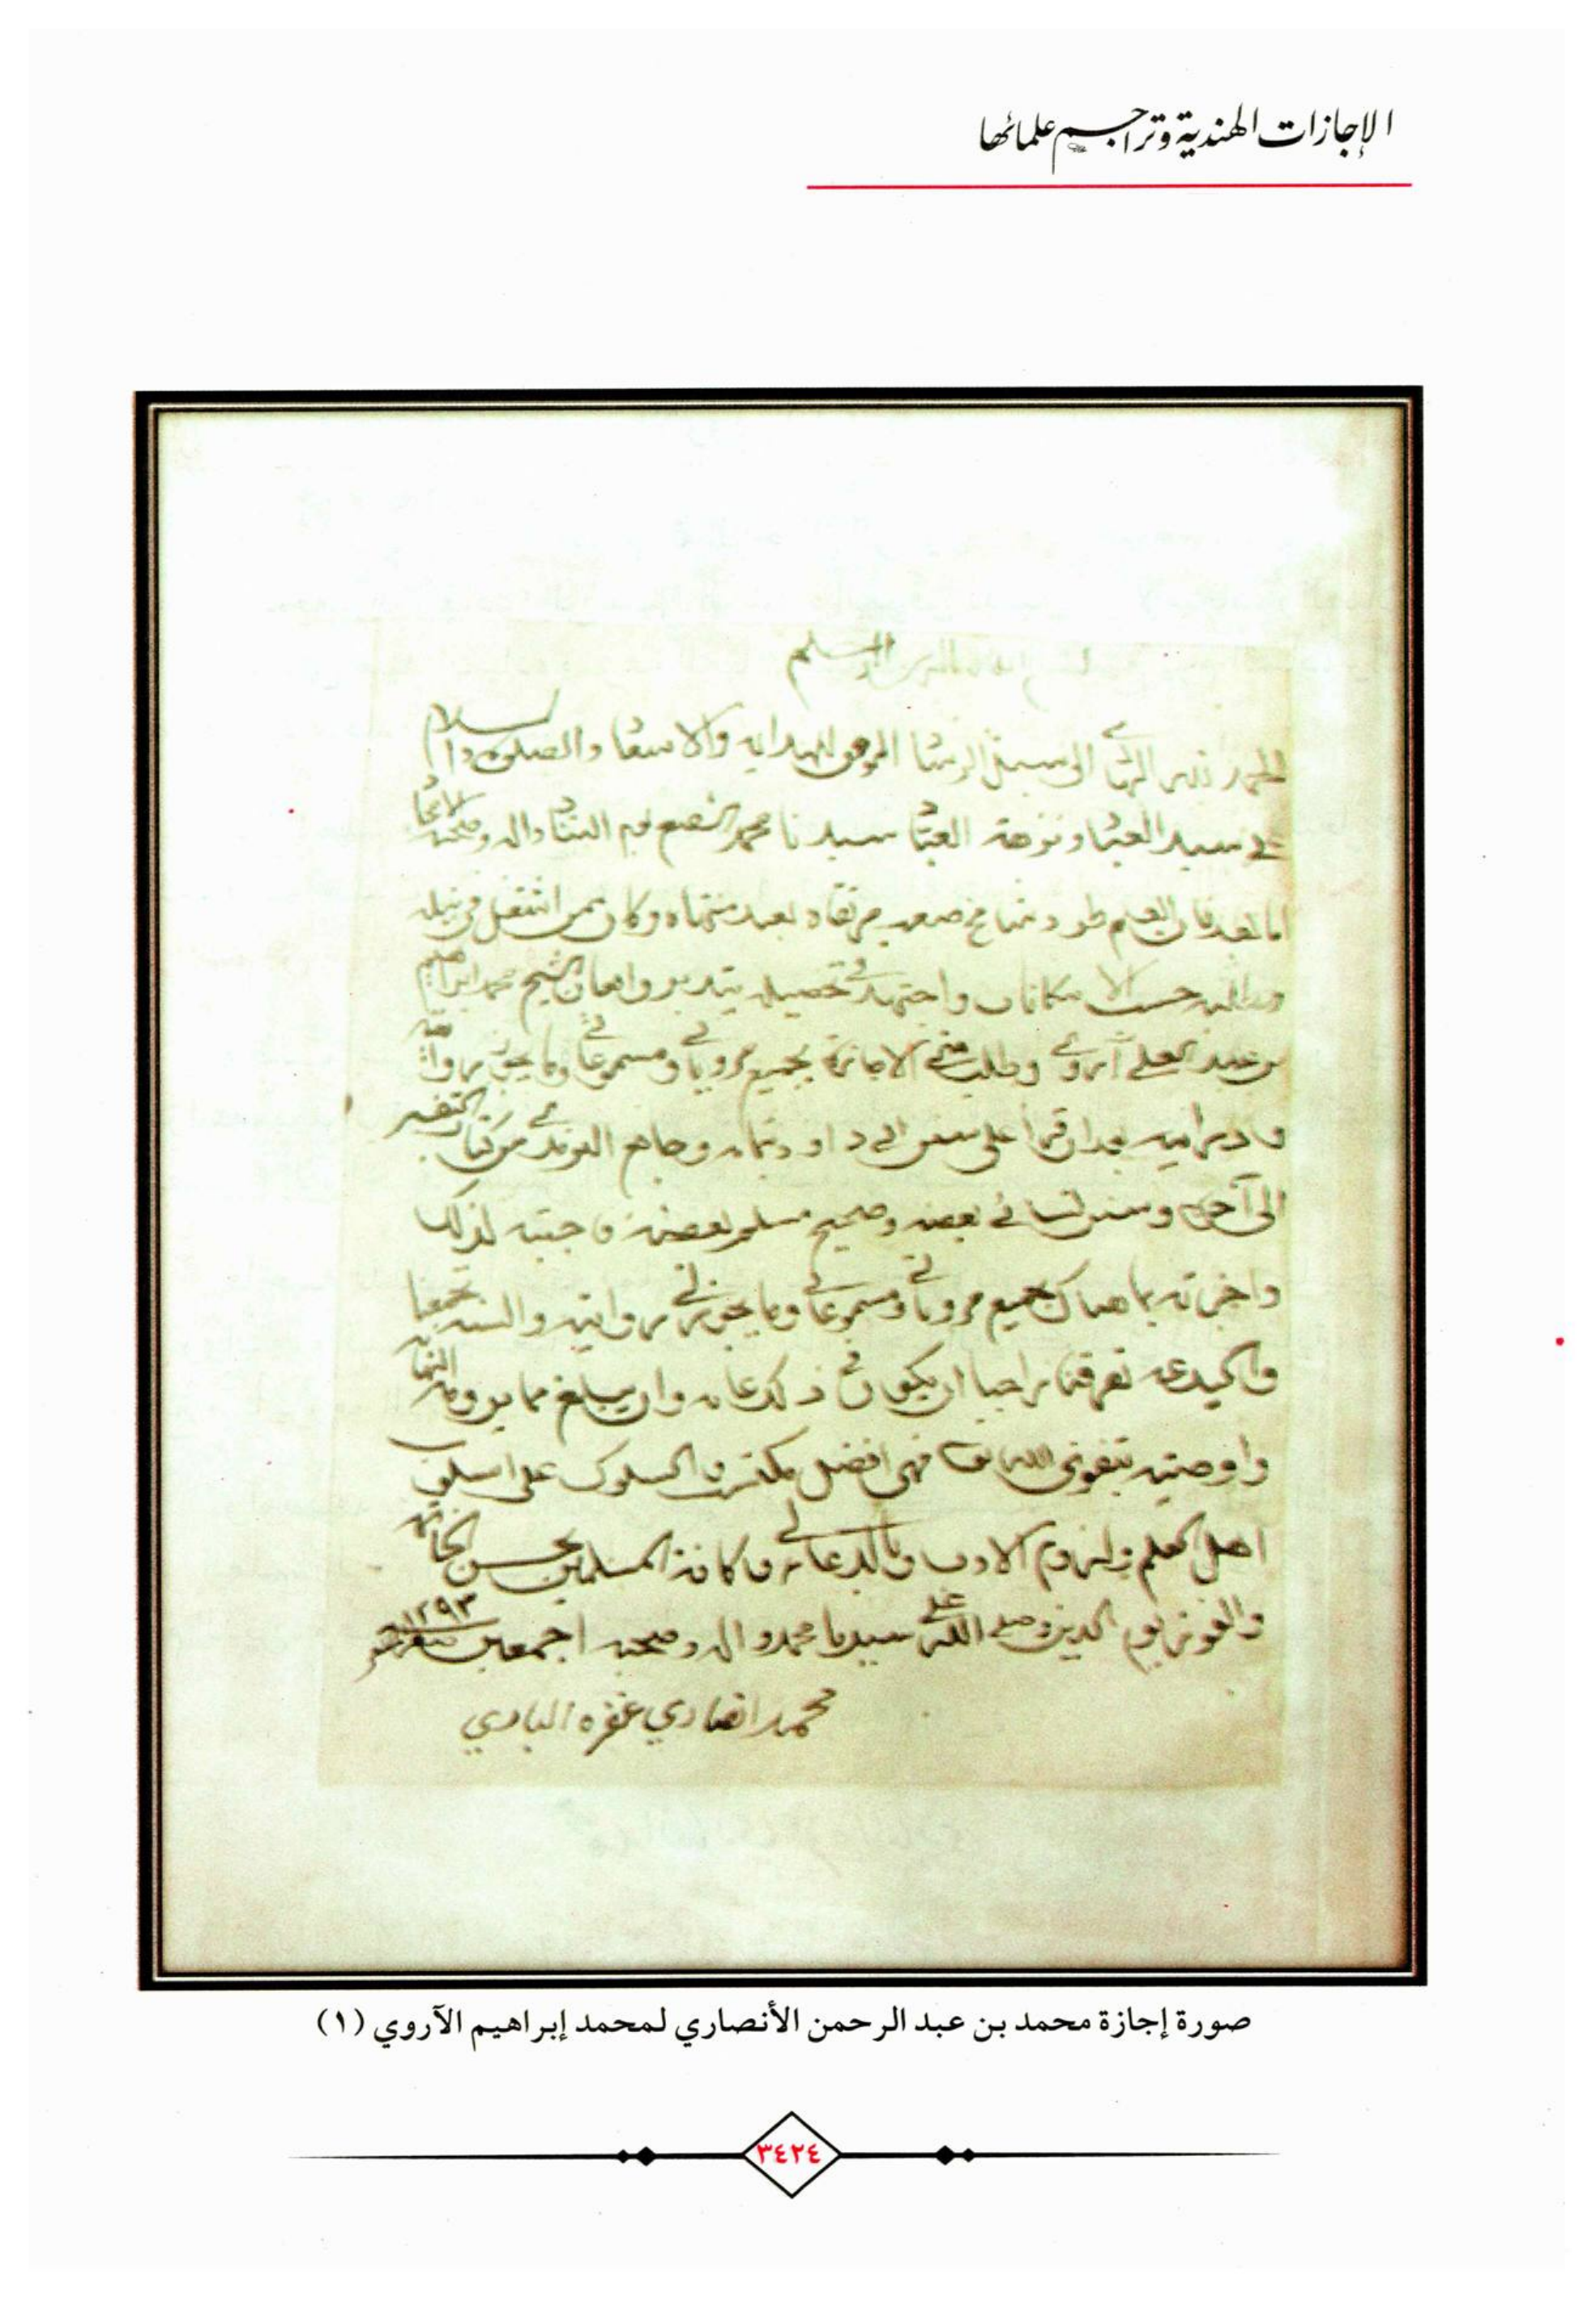 الإجازات الهندية وتراجم علمائها
بسم الله الرحمن الرحيم
الحمد لله الهادي الى سبيل الرشاد الموفق للهداية والاسعاد والصلوة والسلام
على سيد العباد ونزهة العباد سيدنا محمد الشفيع يوم التناد واله وصحبه الامجاد
اما بعد فان العلم طود شامخ صعب مرتقاه بعيد منتهاه وكان ممن اشتغل في نيله
وطلبه حسب الامكان واجتهد في تحصيله بتدبر وامعان الشيخ محمد ابراهيم
بن عبد العلي آروي وطلب مني الاجازة بجميع مروياتي ومسموعاتي وما يجوز لي روايته
ودرايته بعد ان قرأ على سنن ابي داود بتمامه وجامع الترمذي من كتاب التفسير
الى آخره وسنن النسائي بعضه وصحيح مسلم بعضه فاجبته لذلك
واجزته بما هناك بجميع مروياتي ومسموعاتي وما يجوز لي روايته والسنة تجمعنا
والبدعة تفرقنا راجيا ان يكون في ذلك وان يبلغ مما يرومه
واوصيته بتقوى الله تعالى فهي افضل مكتسب والسلوك على اسلوب
اهل العلم ولزوم الادب وبالدعاء لي وكافة المسلمين بحسن الخاتمة
والفوز يوم الدين وصلى الله على سيدنا محمد واله وصحبه اجمعين ١٢٩٣
محمد انصاري غفره الباري
صورة إجازة محمد بن عبد الرحمن الأنصاري لمحمد إبراهيم الآروي (١)
٣٤٢٤